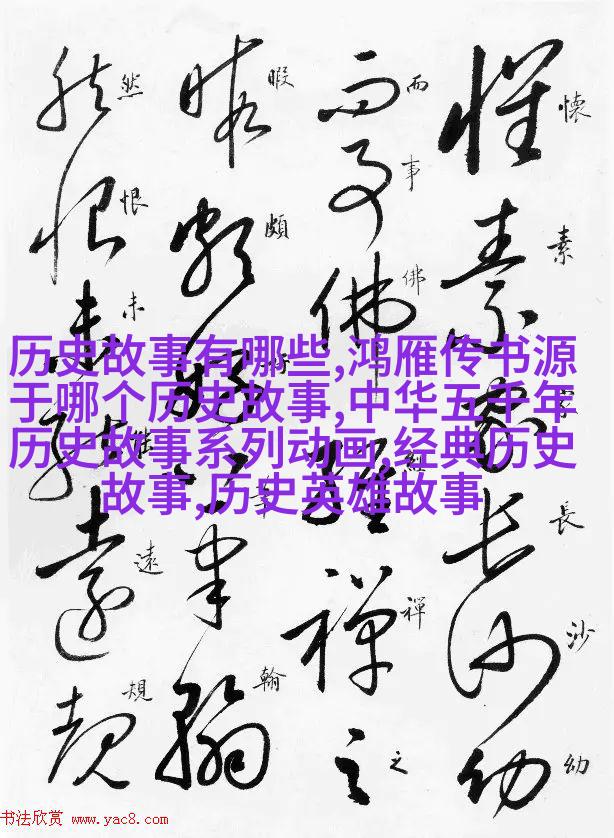 懷素家長沙幼
而事佛經禪之
暇頗好筆翰
然恨未能遠規
历史故事有哪些,鸿雁传书源
于哪个历史故事,中华五千年
历史故事系列动画,经典历史
故事,历史英雄故事
书法欣赏 www.yac8.com